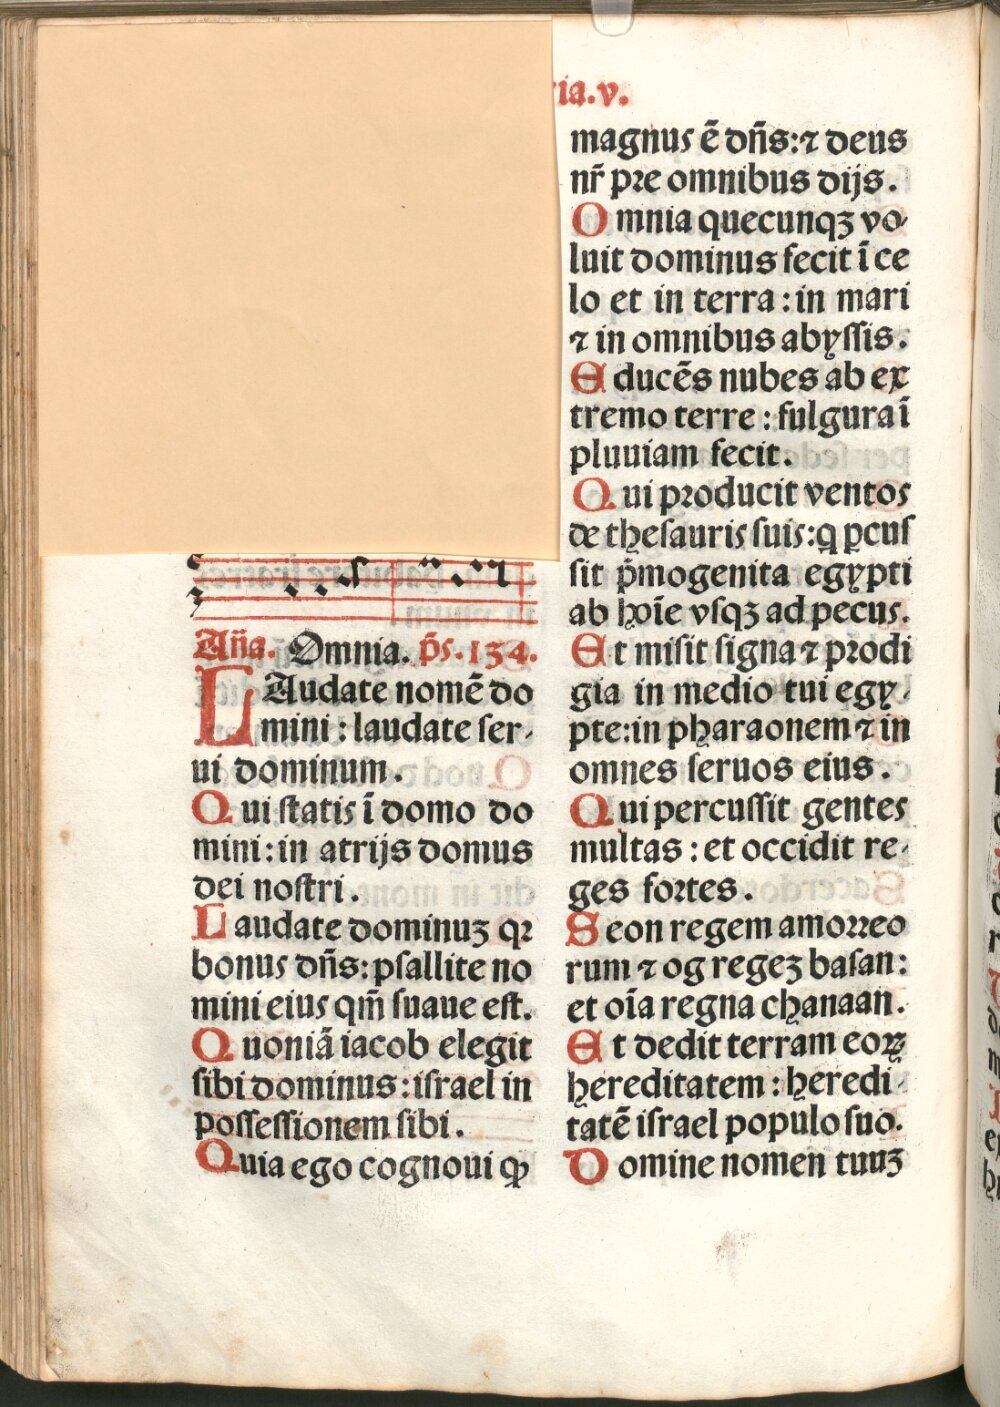 ia.v.
Aña. Omnia. p̄s.134.
LAudate nomē do
mini : laudate ser-
ui dominum.
Qui statis ī domo do
mini : in atrijs domus
dei nostri.
Laudate dominuꝫ qꝛ
bonus dn̄s: psallite no
mini eius qm̄ suaue est.
Quoniā iacob elegit
sibi dominus : israel in
possessionem sibi.
Quia ego cognoui ꝙ
magnus ē dn̄s: ⁊ deus
nr̄ pꝛe omnibus dijs.
Omnia quecunqꝫ vo-
luit dominus fecit ī ce
lo et in terra : in mari
⁊ in omnibus abyssis.
Educēs nubes ab ex
tremo terre : fulgura ī
pluuiam fecit.
Qui pꝛoducit ventos
de thesauris suis: q̄ ꝑcus
sit p̄mogenita egypti
ab hoīe vsqꝫ ad pecus.
Et misit signa ⁊ pꝛodi
gia in medio tui egy-
pte: in pharaonem ⁊ in
omnes seruos eius.
Qui percussit gentes
multas : et occidit re-
ges fortes.
Seon regem amoꝛꝛeo
rum ⁊ og regeꝫ basan :
et oīa regna chanaan.
Et dedit terram eoꝝ
hereditatem : heredi-
tatē israel populo suo.
Domine nomen tuuꝫ